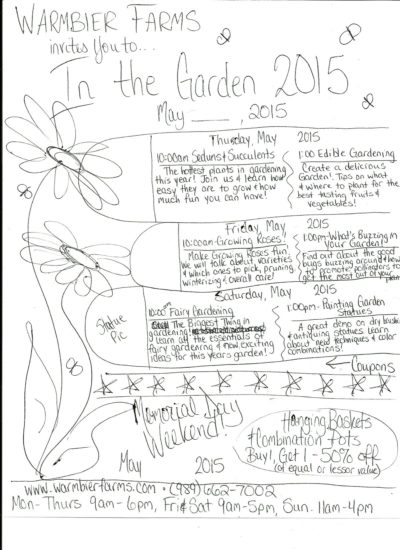 WARMBIER FARMS
invites You to...
In the Garden 2015
May ___, 2015
Thursday, May 2015
10:00am Sedums & Succulents
The hottest plants in gardening
this year! Join us & learn how
easy they are to grow & how
much fun you can have!
1:00 Edible Gardening
Create a delicious
Garden! Tips on what
& where to plant for the
best tasting fruits &
vegetables!
Friday, May 2015
10:00am - Growing Roses
Make Growing Roses fun!
We will talk about varieties
& which ones to pick, pruning,
winterizing & overall care!
1:00pm - What's Buzzing in
Your Garden!
Find out about the good
bugs buzzing around & how
to promote pollinators to
get the most out of your
Saturday, May 2015
10:00am Fairy Gardening
The Biggest Thing in
gardening!
Learn all the essentials of
fairy gardening & new exciting
ideas for this years garden!
1:00pm - Painting Garden
Statues
A great demo on dry brushing
& antiquing statues learn
about new techniques & color
combinations!
Statue
Pic
Coupons
Memorial Day
Weekend!
May 2015
Hanging Baskets
& Combination Pots
Buy 1, Get 1 - 50% off
(of equal or lessor value)
www.warmbierfarms.com • (989) 662-7002
Mon-Thurs 9am-6pm, Fri & Sat 9am-5pm, Sun. 11am-4pm